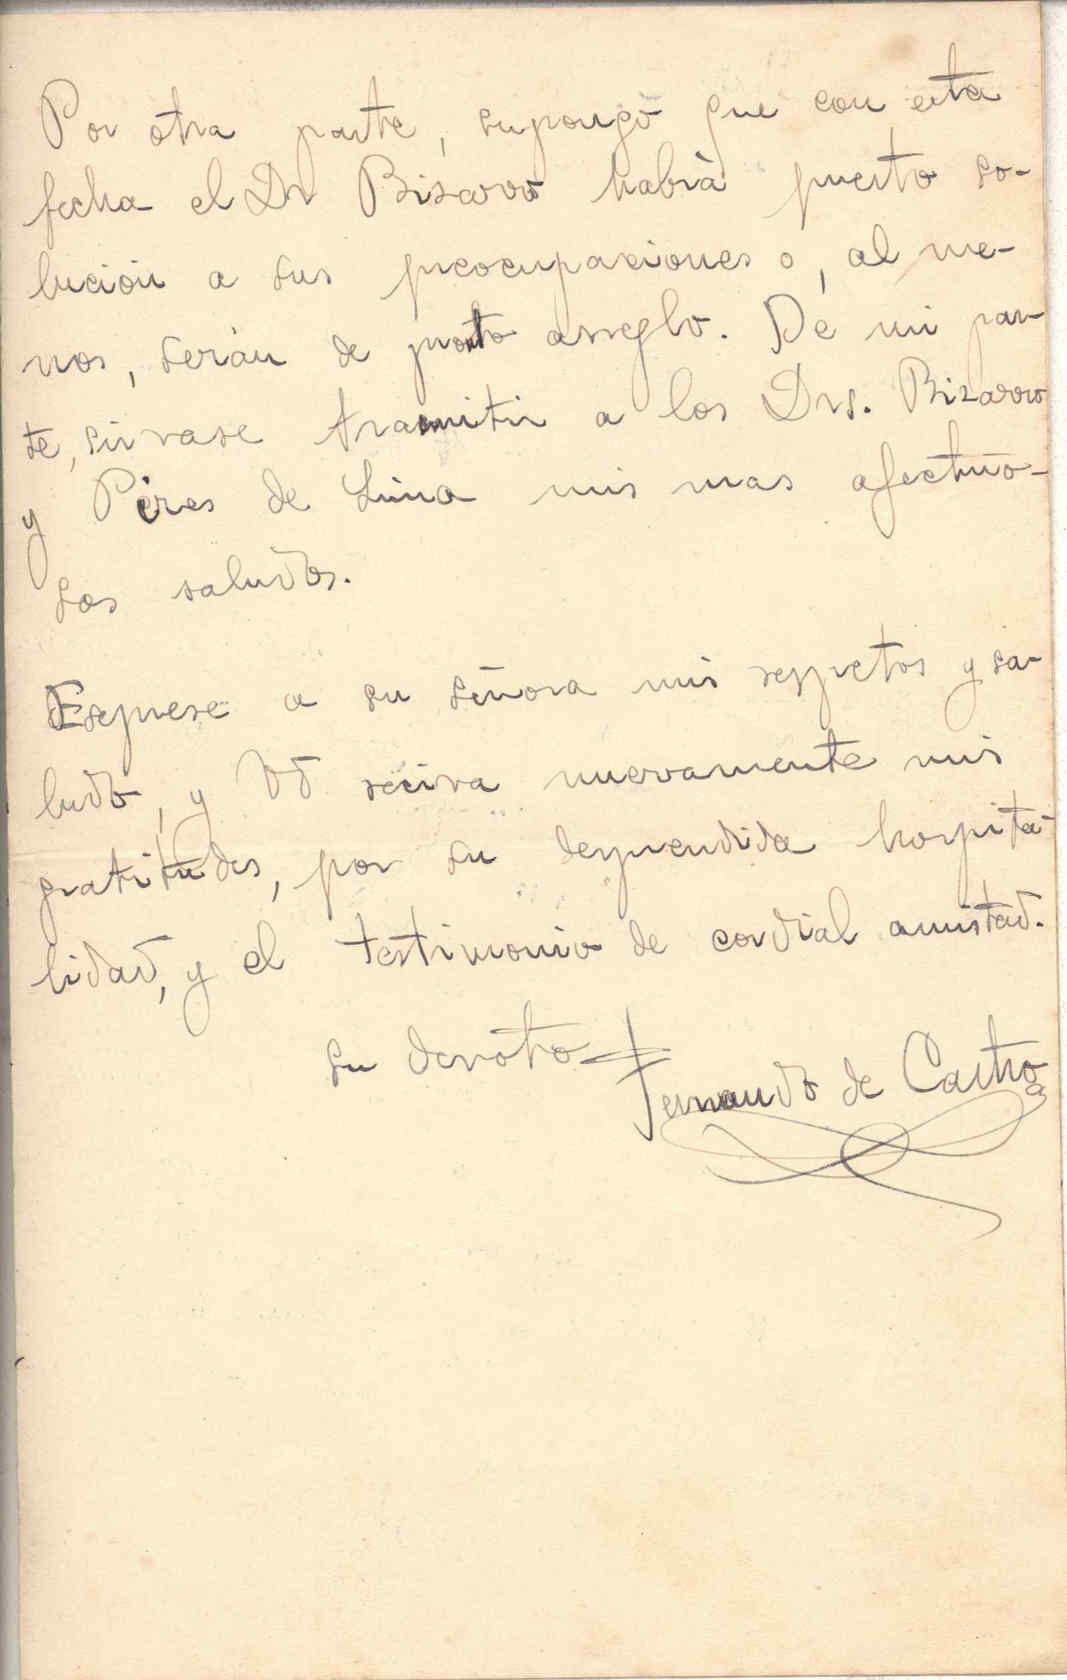 Por otra parte, supongo que con esta
fecha el Dr Bisarro habrà puesto so-
lución a sus preocupaciones o, al me-
nos, serán de pronto arreglo. De mi par-
te, sirvase trasmitir a los Drs. Bizarro
y Pires de Lima mis mas afectuo-
sos saludos.
Exprese a su señora mis respetos y sa-
ludo, y Vd reciva nuevamente mis
gratitudes, por su desprendida hospita-
lidad, y el testimonio de cordial amistad.
su devoto
Fernando de Castro